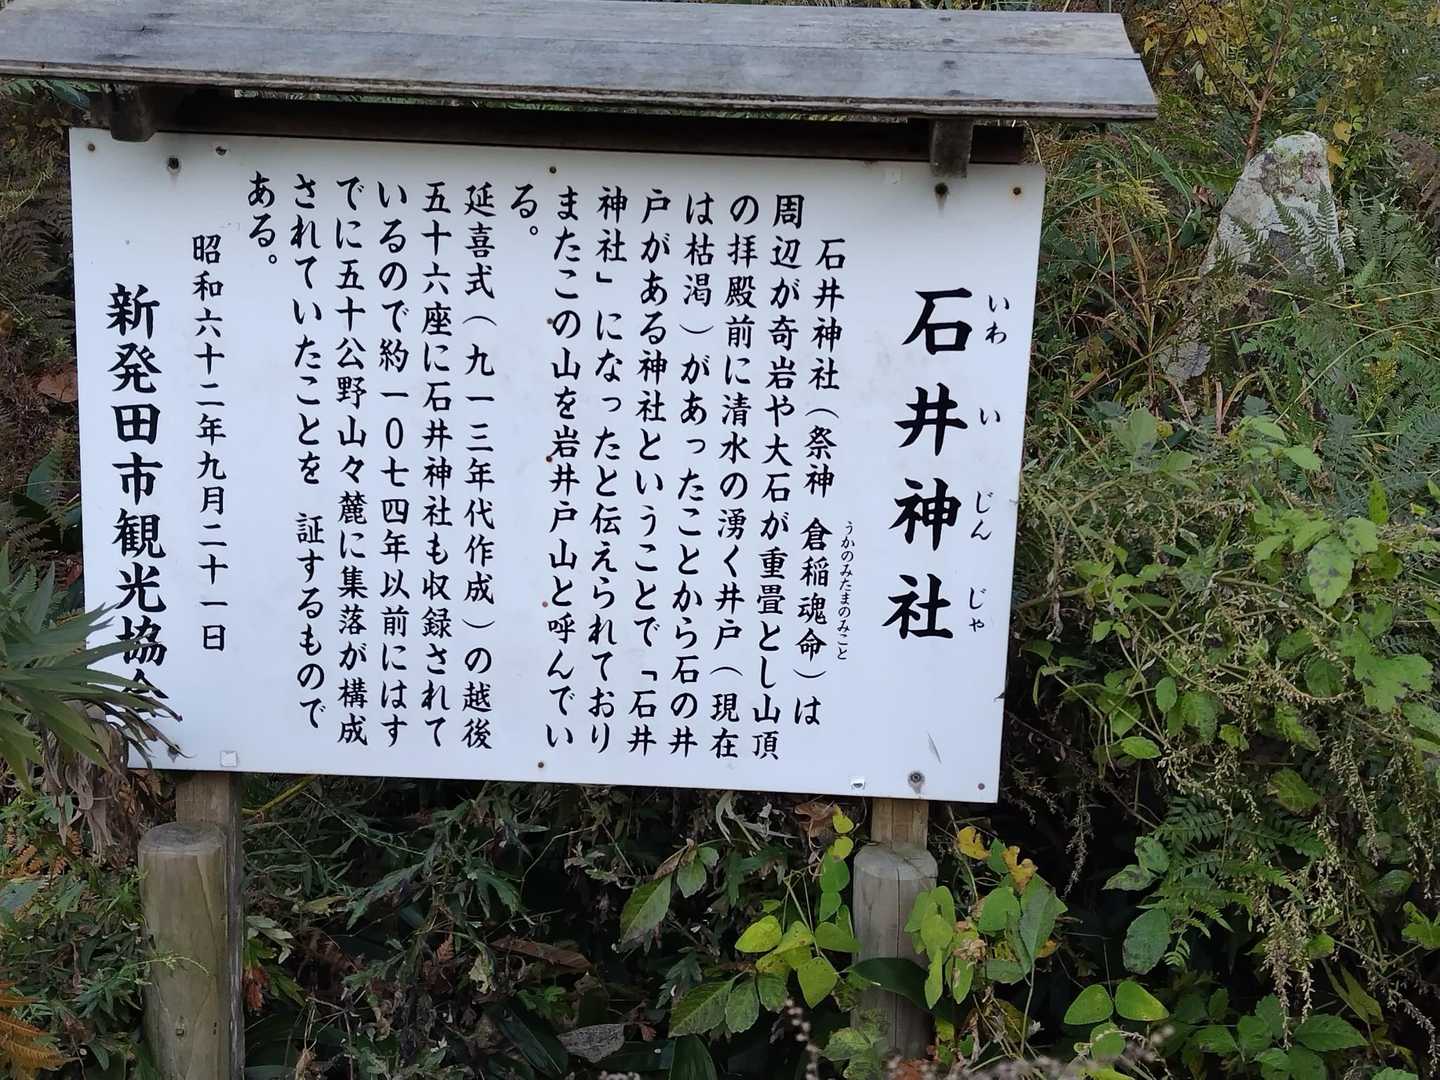 石井神社
いわいじんじゃ
石井神社(祭神 倉稲魂命)は
うかのみたまのみこと
周辺が奇岩や大石が重畳とし山頂
の拝殿前に清水の湧く井戸(現在
は枯渇)があったことから石の井
戸がある神社ということで「石井
神社」になったと伝えられており
またこの山を岩井戸山と呼んでい
る。
延喜式(九一三年代作成)の越後
五十六座に石井神社も収録されて
いるので約一〇七四年以前にはす
でに五十公野山々麓に集落が構成
されていたことを 証するもので
ある。
昭和六十二年九月二十一日
新発田市観光協会